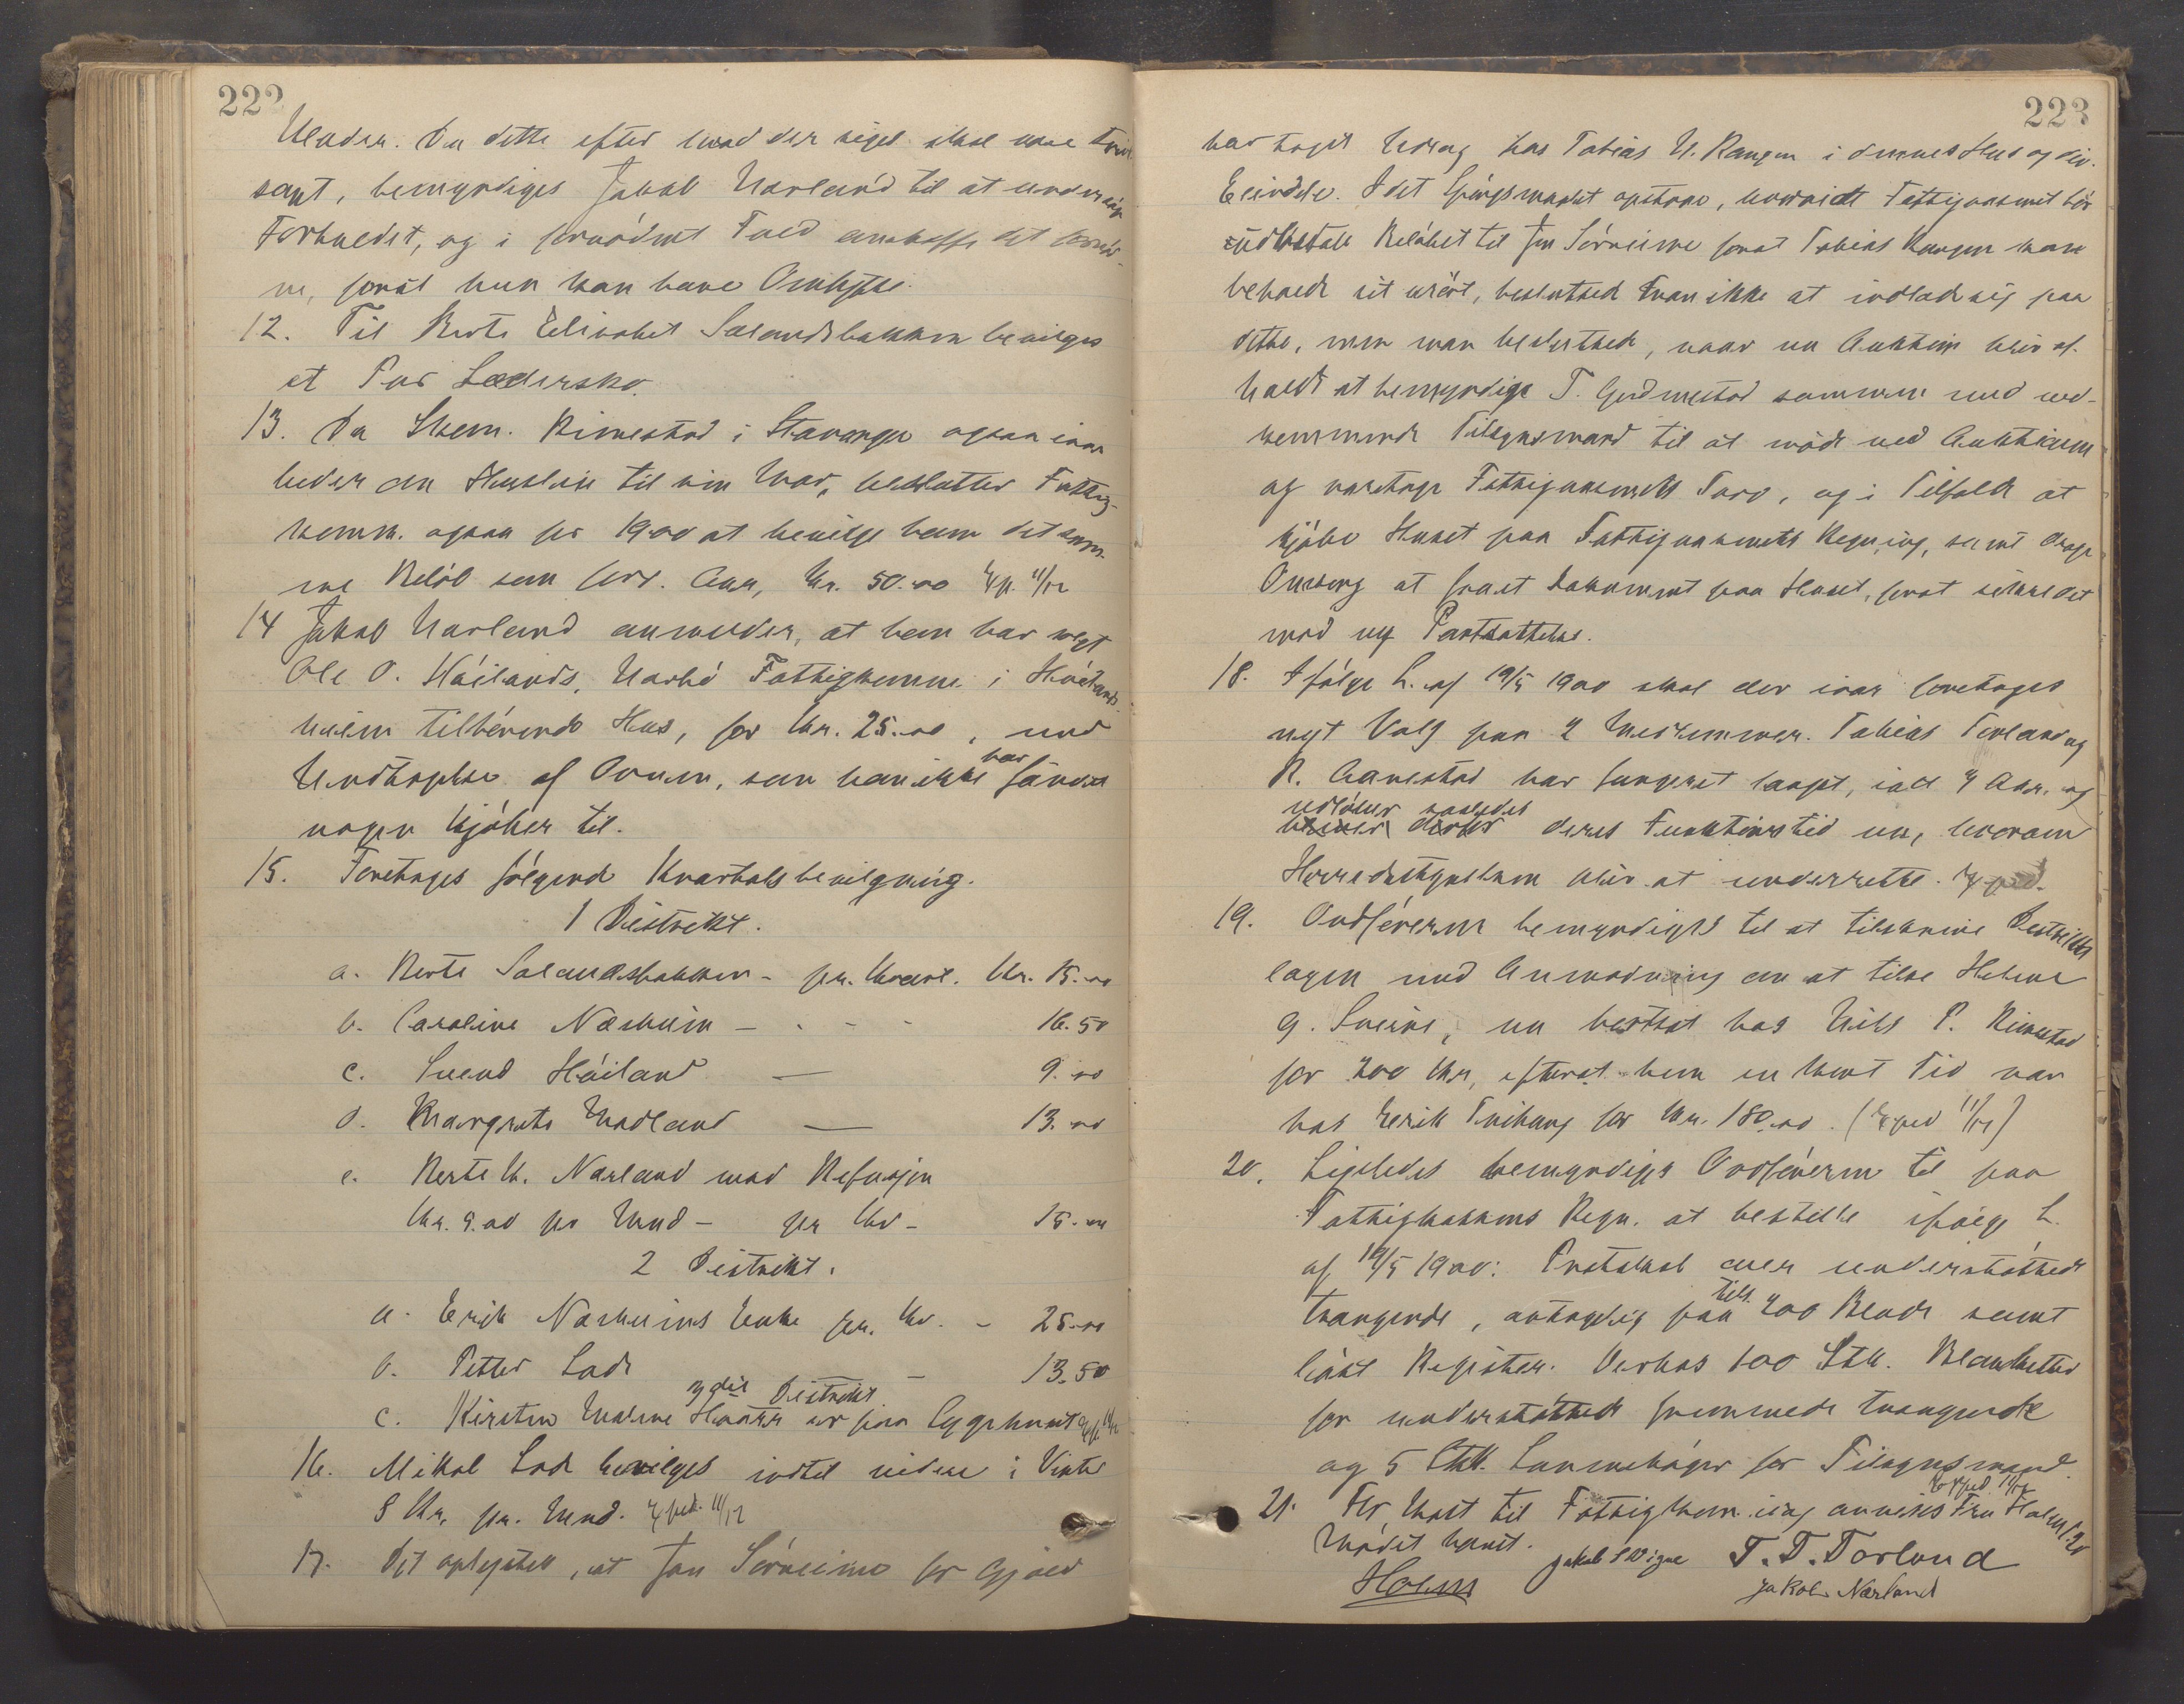 222
Klæder. Da dette efter hvad der siges skal være
somt, bemyndiges Jakob Narland til at undersøge
Forholdet, og i fornødent Fald anskaffe det fornød-
ne, forat hun kan have Omhytte.
12. Til Berte Elisabet Sælandsbakken bevilges
et Par Lædersko.
13. Da Skem. Rimestad i Stavanger ogsaa iaar
beder om Husleie til sin Mor, beslutter Fattig-
komm. ogsaa for 1900 at bevilge ham det sam-
me Beløb som forr. Aar, Kr. 50.00 Exp. 11/12
14 Jakob Narland anmelder, at han har solgt
Ole O. Höilands, Nærbö Fattigkomme i Höilands-
heien tilhörende Hus, for Kr. 25.00, med
Undtagelse af Ovnen, som han ikke har fundet
nogen Kjöber til.
15. Foretages fölgende Kvartalsbevilgning.
1 Distrikt.
a. Berte Sælandsbakken - pr. Kvart. Kr. 15.00
b. Caroline Næsheim - - - - 16.50
c. Svend Höiland — 9.00
d. Margrete Madland — 13.00
e. Berte K. Narland mod Refusjon
Kr. 9.00 pr Mnd - pr Kv - 15.00
2 Distrikt.
a. Erik Næsheims Enke pr. Kv. - 25.00
b. Petter Lode - 13.50
3die Distrikt
c. Kirsten Malene Haarr er paa Sygehuset Exp. 11/12
16. Mikal Lode bevilges indtil videre i Vinter
8 Kr, pr. Mnd. Exped. 11/12
17. Det oplystes, at Jon Sörheime for Gjæld
223
har taget Udlæg hos Tobias U. Kangen i dennes Hus og div.
Eiendele. I det Spörgsmaalet opstaar, hvorvidt Fattigvæsenet bör
udbetale Belöbet til Jon Sörheime forat Tobias Kangen kan
beholde sit urört, besluttede man ikke at indlade sig paa
dette, men man besluttede, naar en Auktion blir af-
holdt at bemyndige T. Gudmestad sammen med ved-
kommende Tilsynsmand til at möde ved Auktionen
og varetage Fattigvæsenets Tarv, og i Tilfælde at
kjöbe Huset paa Fattigvæsenets Regning, samt drage
Omsorg at faa et Dokument paa Huset, forat sikre det
mod ny Pantsættelse.
18. Ifölge L. af 19/5 1900 skal der iaar foretages
nyt Valg paa 2 Medlemmer. Tobias Torland og
R. Aanestad har fungeret længst, ialt 4 Aar, og
udlöber saaledes
deres Funktionstid nu, hvorom
Herredsstyrelsen blir at underrette. Exped.
19. Ordföreren bemyndiges til at tilskrive Distrikts-
lægen med Anmodning om at tilse Helene
G. Sverine, nu bortsat hos Nils P. Rimestad
for 200 Kr, efterat hun en kort Tid var
hos Erik Tuihaug for Kr. 180.00. (Exped 11/12)
20. Ligeledes bemyndiges Ordföreren til paa
Fattigkassens Regn. at bestille ifölge L.
af 19/5 1900: Protokol over understöttede
trængende, antagelig paa tils. 200 Blade samt
löst Register. Derhos 100 Stk. Blanketter
for understöttede fremmede trængende
og 5 Stk. Lommeböger for Tilsynsmænd.
Exped. 11/12
21. For Kost til Fattigkom. idag anvises Fru Holm
Mödet hævet.
Holm
Jakob S Vigre T. T. Torland
Jakob Nærland